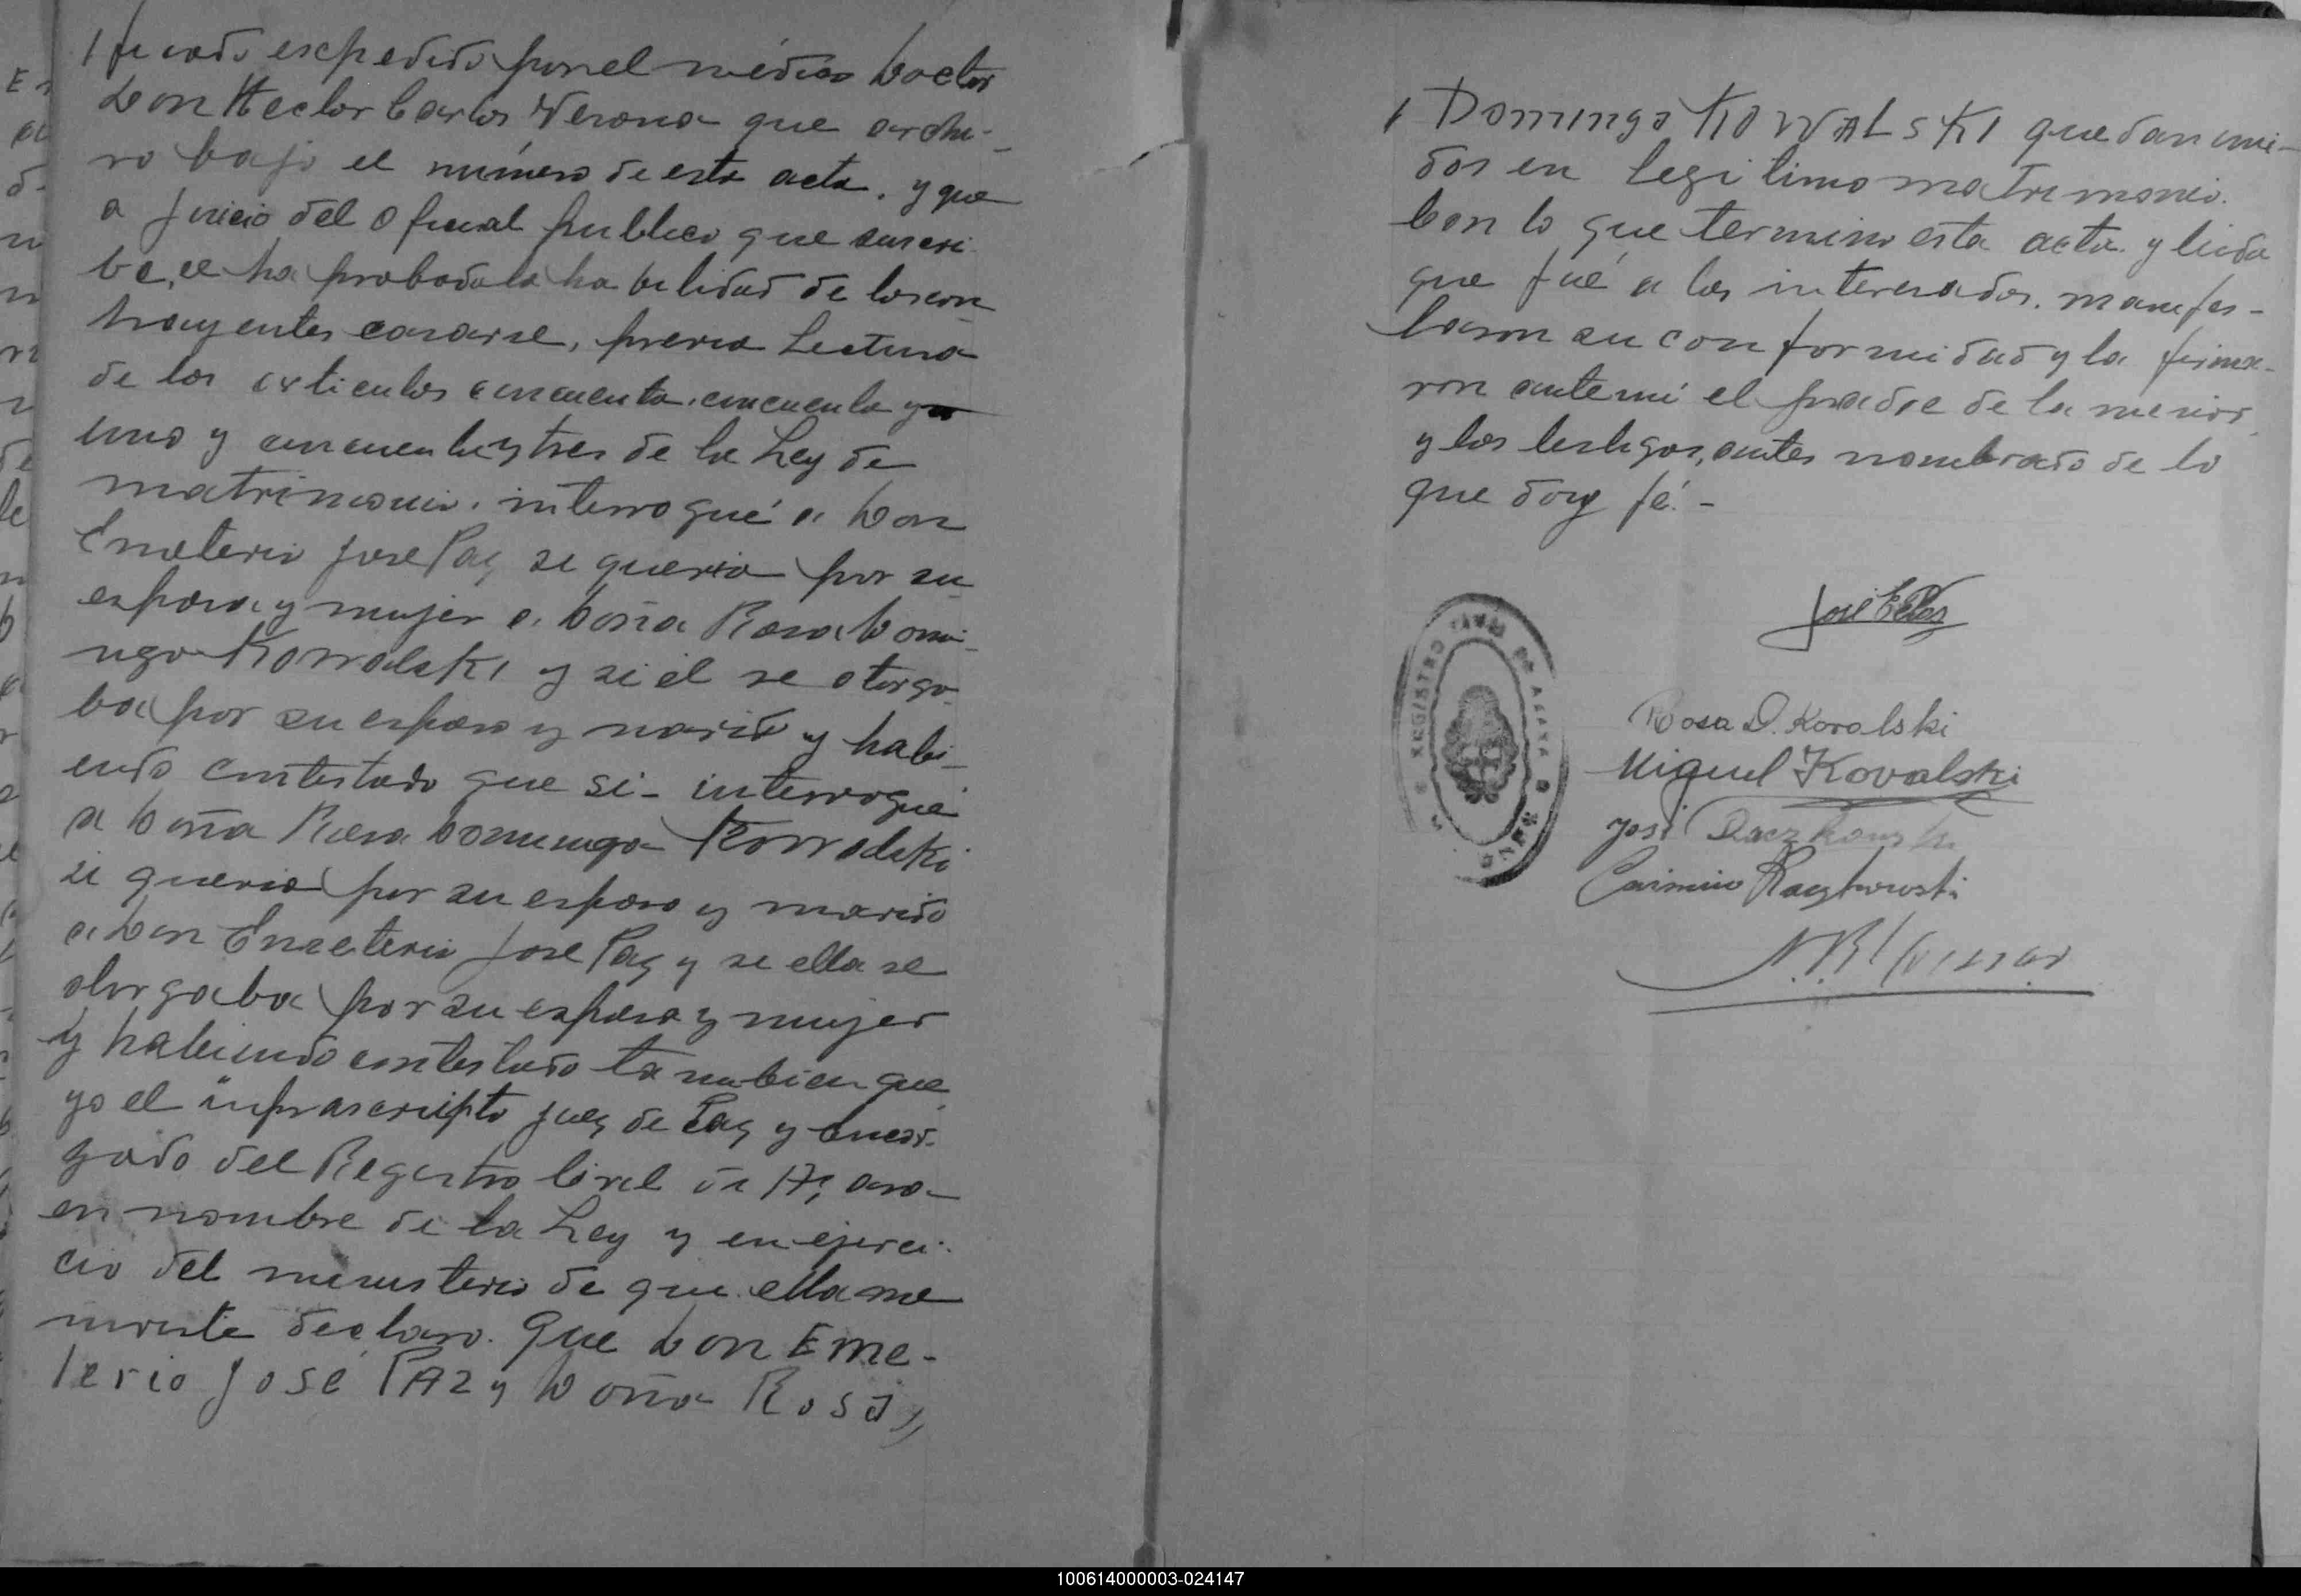 tificado expedido por el médico Doctor
Don Hector Carlos Verona que archi-
vo bajo el número de esta acta. y que
a juicio del Oficial publico que suscri
be, se ha probado la habilidad de los con
trayentes casarse, previa Lectura
de los articulos cincuenta, cincuenta y
uno y cincuenta y tres de la Ley de
matrimonio. interrogué a Don
Emeterio Jose Paz si queria por su
esposa y mujer a Doña Rosa Domi-
nga Kowalski y si el se otorga-
ba por su esposo y marido y habi-
endo contestado que si- interrogué
a Doña Rosa Dominga Kowalski
si queria por su esposo y marido
a Don Emeterio Jose Paz y si ella se
otorgaba por su esposa y mujer
y habiendo contestado tambien que
yo el infrascripto juez de Paz y encar-
gado del Registro Civil de Azara
en nombre de la Ley y en ejerci-
cio del ministerio de que ella me
inviste declaro. Que Don Eme-
terio José PAZ y Doña Rosa
Dominga KOWALSKI quedan uni-
dos en legitimo matrimonio.
Con lo que termino esta acta y leida
que fué a los interesados. manifes-
taron su conformidad y la firma-
ron ante mí el padre de la menor
y los testigos, antes nombrado de lo
que doy fé.-
José E Paz
REGISTRO CIVIL DE AZARA
Rosa D. Kovalski
Miguel Kovalski
José Raczkowski
Casimiro Raczkowski
100614000003-024147